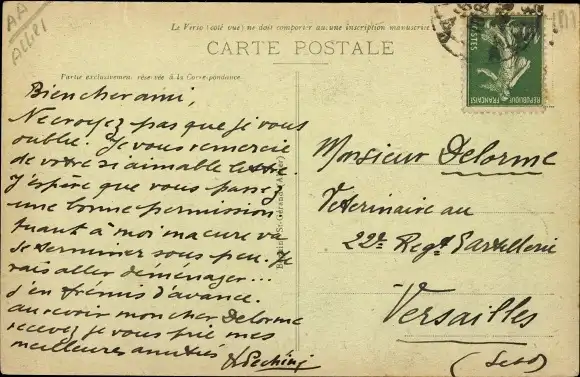 AA
ALLRI
Le Verso (coté vue) ne doit comporter aucune inscription manuscrite
CARTE POSTALE
Partie exclusivement réservée à la Correspondance
POSTES
REPUBLIQUE FRANÇAISE
Bien cher ami,
Ne croyez pas que je vous
oublie. Je vous remercie
de votre si aimable lettre.
J'espère que vous passez
une bonne permission
quant à moi ma cure va
se terminer sous peu. Je
vais aller déménager...
j'en frémis d'avance.
au revoir mon cher Delorme
recevez je vous prie mes
meilleures amitiés
Monsieur Delorme
Veterinaire au
22e Regt d'artillerie
Versailles